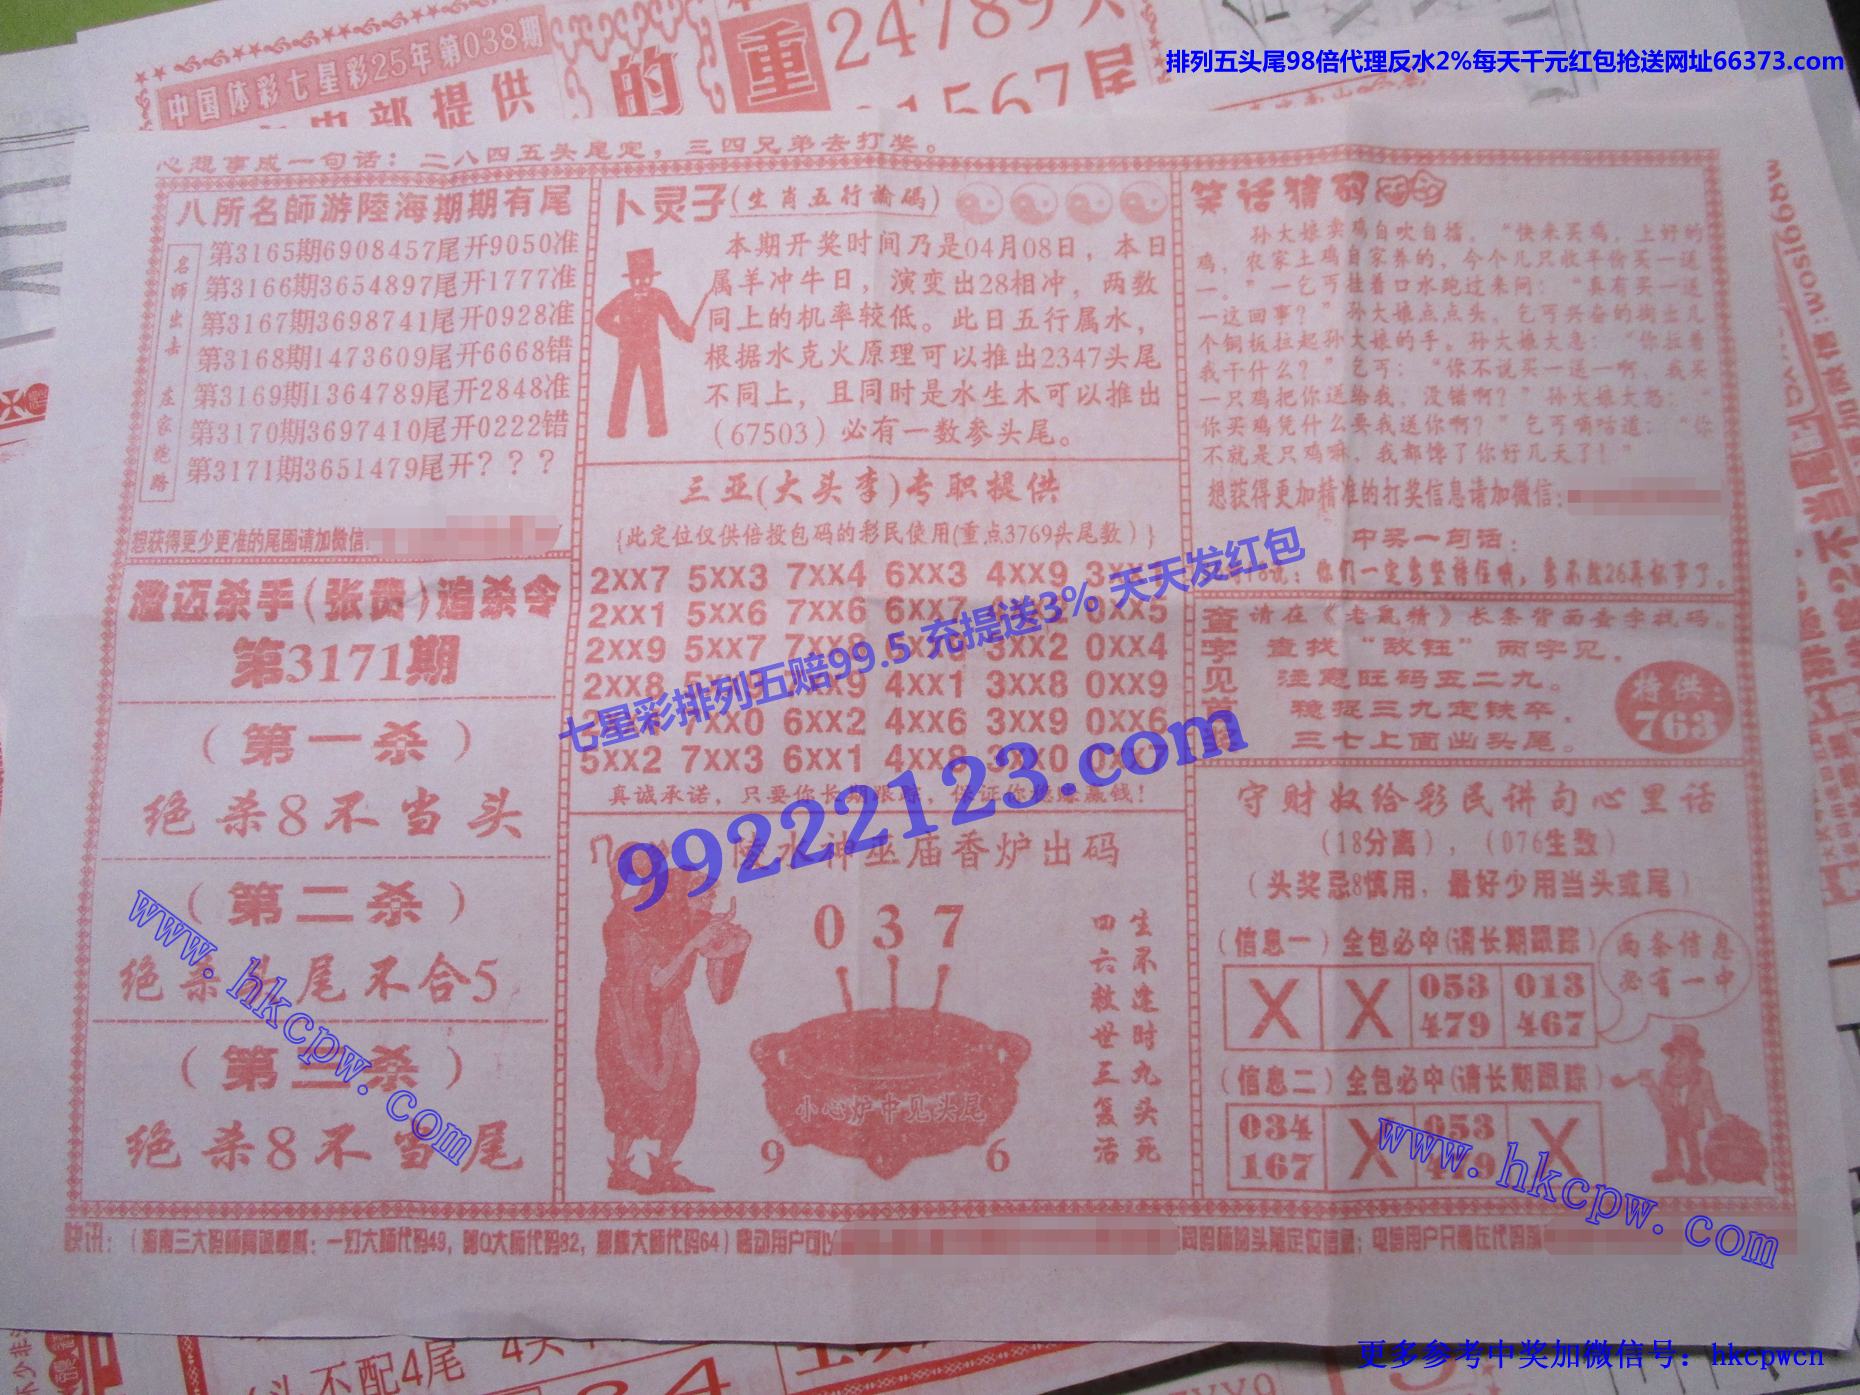 中国体彩七星彩25年第038期
的
重
24789
1567尾
排列五头尾98倍代理反水2%每天千元红包抢送网址66373.com
心想事成一句话：二八四五头尾定，三四兄弟去打奖。
八所名師游陸海期期有尾
名师出击 庄家跑路
第3165期6908457尾开9050准
第3166期3654897尾开1777准
第3167期3698741尾开0928准
第3168期1473609尾开6668错
第3169期1364789尾开2848准
第3170期3697410尾开0222错
第3171期3651479尾开？？？
想获得更少更准的尾围请加微信:
澄迈杀手(张贵)追杀令
第3171期
（第一杀）
绝杀8不当头
（第二杀）
绝杀头尾不合5
（第三杀）
绝杀8不当尾
卜灵子(生肖五行論碼)
本期开奖时间乃是04月08日，本日
属羊冲牛日，演变出28相冲，两数
同上的机率较低。此日五行属水，
根据水克火原理可以推出2347头尾
不同上，且同时是水生木可以推出
（67503）必有一数参头尾。
三亚(大头李)专职提供
{此定位仅供倍投包码的彩民使用(重点3769头尾数)}
2XX7 5XX3 7XX4 6XX3 4XX9
2XX1 5XX6 7XX6 6XX7
2XX9 5XX7 7XX8 3XX2 0XX4
2XX8 4XX1 3XX8 0XX9
6XX2 4XX6 3XX9 0XX6
5XX2 7XX3 6XX1 4XX8 3XX0 0XX7
真诚承诺，只要你长期跟踪，保证你稳赚赢钱！
七星彩排列五赔99.5 充提送3% 天天发红包
99222123.com
陵水神巫庙香炉出码
0 3 7
小心炉中见头尾
9 6
生不逢时九头死
四六救世三复活
笑话猜码
孙大娘卖鸡自吹自擂，“快来买鸡，上好的
鸡，农家土鸡自家养的，今个儿只收半价买一送
一。”一乞丐挂着口水跑过来问：“真有买一送
一这回事？”孙大娘点点头，乞丐兴奋的掏出几
个铜板拉起孙大娘的手。孙大娘大急：“你拉着
我干什么？”乞丐：“你不说买一送一啊，我买
一只鸡把你送给我，没错啊？”孙大娘大怒：“
你买鸡凭什么要我送你啊？”乞丐嘀咕道：“你
不就是只鸡嘛，我都馋了你好几天了！”
想获得更加精准的打奖信息请加微信:
中奖一句话：
说：你们一定要坚持住哦，要不然26再标事了。
查字见言
请在《老鼠精》长条背面查字找码。
查找“敌钰”两字见。
注意旺码五二九。
稳捉三九定铁卒。
三七上面出头尾。
特供:
763
守财奴给彩民讲句心里话
（18分离），（076生数）
（头奖忌8慎用，最好少用当头或尾）
（信息一）全包必中(请长期跟踪)
X X 053 013
479 467
两条信息
必有一中
（信息二）全包必中(请长期跟踪)
034 X 053 X
167
快讯：
www.hkcpw.com
www.hkcpw.com
不配4尾
更多参考中奖加微信号：hkcpwcn